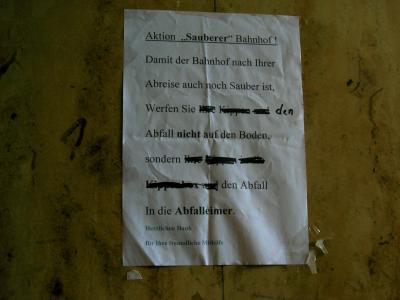 Aktion „Sauberer“ Bahnhof !
Damit der Bahnhof nach Ihrer
Abreise auch noch Sauber ist,
Werfen Sie Ihre Kippen und den
Abfall nicht auf den Boden,
sondern Ihre Kippen
den Abfall
In die Abfalleimer.
Herzlichen Dank
für Ihre freundliche Mithilfe